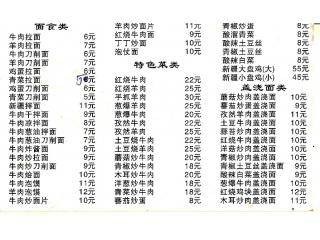 面食类
牛肉拉面 6元
羊肉拉面 7元
牛肉刀削面 6元
羊肉刀削面 7元
鸡蛋拉面 6元
青菜拉面 5元
鸡蛋刀削面 6元
青菜刀削面 5元
新疆拌面 11元
牛肉干拌面 9元
牛肉凉拌面 8元
牛肉葱油拌面 7元
牛肉葱油刀削面 7元
牛肉炸酱面 9元
牛肉炒拉面 9元
牛肉炒刀削面 10元
牛肉烩面 10元
羊肉泡馍 11元
牛肉泡馍 10元
牛肉炒面片 10元
羊肉炒面片 11元
牛肉面 10元
丁丁炒面 10元
炮仗面 10元
特色菜类
红烧牛肉 22元
红烧羊肉 25元
平抓羊肉 30元
葱爆羊肉 25元
葱爆牛肉 22元
孜然牛肉 22元
孜然羊肉 25元
土豆烧牛肉 22元
土豆烧羊肉 25元
蘑菇炒牛肉 20元
青椒炒牛肉 20元
洋葱炒牛肉 18元
木耳炒牛肉 20元
番茄炒蛋 8元
青椒炒蛋 8元
酸溜青菜 8元
酸辣土豆丝 8元
青椒土豆丝 8元
酸辣白菜 8元
新疆大盘鸡(大) 55元
新疆小盘鸡(小) 45元
盖浇面类
蘑菇炒肉盖浇面 10元
番茄炒蛋盖浇面 8元
孜然羊肉盖浇面 11元
土豆牛肉盖浇面 10元
洋葱炒肉盖浇面 10元
土豆丝盖浇面 8元
青椒炒蛋盖浇面 8元
青椒炒肉盖浇面 10元
酸辣白菜盖浇面 8元
葱爆牛肉盖浇面 10元
红烧牛肉盖浇面 10元
木耳炒肉盖浇面 10元